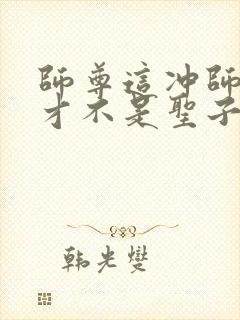 師尊這冲師
才不是聖子
韩光燮